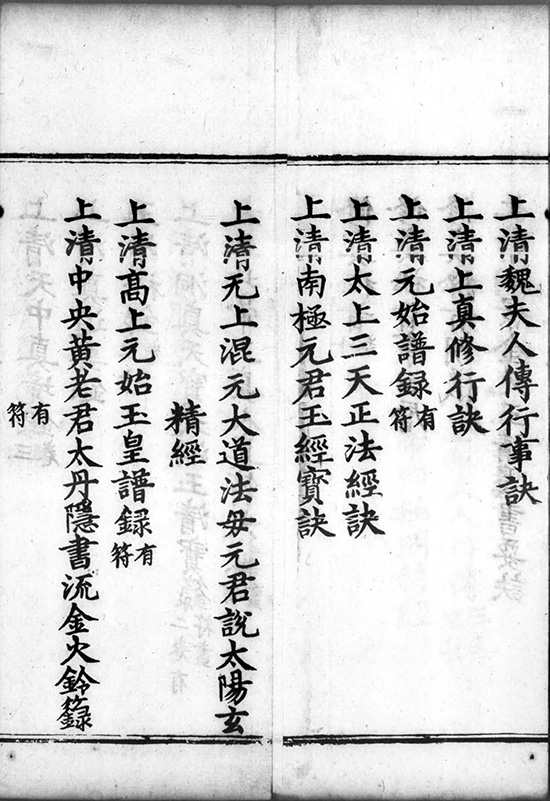 上清魏夫人傳行事訣
上清上真修行訣
上清元始譜録有符
上清太上三天正法經訣
上清南極元君玉經寳訣
上清元上混元大道法母元君說太陽玄
精經
上清髙上元始玉皇譜録有符
上清中央黄老君太丹隱書流金火鈴籙
有符